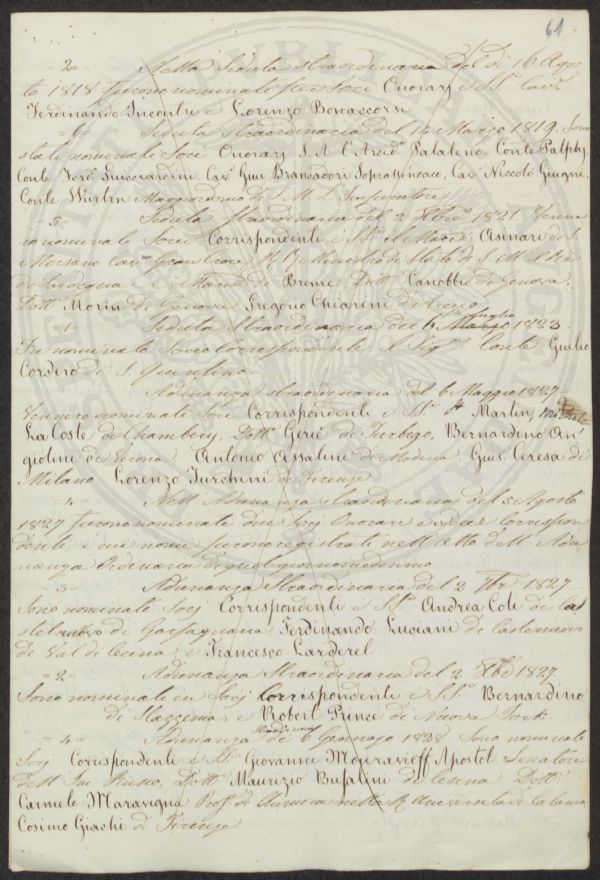 61
-2- Nella Seduta straordinaria del dì 16 Agos
to 1818 furono nominati per Soci Onorarj i SS.ri Cav.r
Ferdinando Incontri e Lorenzo Bonaccorsi
-6- Seduta straordinaria del 14 Marzo 1819. Sono
stati nominati Soci Onorarj S. A. l'Arcid. Palatino, Conte Palphy
Conte Ferd. Guicciardini, Cav. Gius. Brancadori Soprassindaco, Cav. Niccolò Giugni,
Conte Wurtzn Maggiordomo di S. M. L'
-5- Seduta straordinaria del 2 Xbre 1821 Venne
ro nominati Soci Corrispondenti i SS.ri Asinari di S.
Morsano Cav. Gran Croce Ministro di Stato di S. M. il Re
di Sardegna, Marc. de Breme, Dott. Canobbio di Genova,
Dott. Morin di Genova Gregorio Chiarini di
-1- Seduta Straordinaria del 6 Luglio 1823.
Fu nominato Socio Corrispondente il Sig. Conte Giulio
Cordero di S. Quintino
Adunanza straordinaria del 6 Maggio 1827
Vennero nominati Soci Corrispondenti i SS.ri Martin,
La Coste di Chambery, Dott. Geriè di Turbigo, Bernardino An
giolini di Antonio Assalini di Modena, Gius. Ceresa di
Milano Lorenzo Turchini di Firenze
-4- Nell' Adunanza straordinaria del 5 Agosto
1827 furono nominati due Socj Onorari e due Corrispon
denti i cui nomi furono registrati nell' Atto dell' Adu
nanza Ordinaria di quel giorno medesimo
-3- Adunanza Straordinaria del 2 7bre 1827
Sono nominati Socj Corrispondenti i SS.ri Andrea Coli di Ca
stelnuovo di Garfagnana, Ferdinando Luciani di Castelnuovo
di Val di Cecina, e Francesco Larderel
-2- Adunanza Straordinaria del 2 Xbre 1827
Sono nominati in Socj Corrispondenti i SS.ri Bernardino
di Stazzema, e Robert Prince di Nuova York
-4- Adunanza Straordinaria de 6 Gennajo 1828 Sono nominati
Socj Corrispondenti i SS.ri Giovanni Mouravieff Apostol Senatore
dell' Imp. Russo, Dott. Maurizio Bufalini di Cesena Dott.
Carmelo Maravigna Prof. di Chimica nella R. Università di Catania
Cosimo Giachi di Firenze